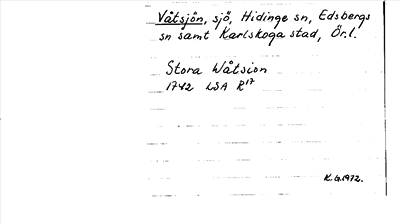 Våtsjön, sjö, Hidinge sn, Edsbergs
sn samt Karlskoga stad, Ör.l.
Stora Wåtsion
1742 LSA R17
K.G.1972.